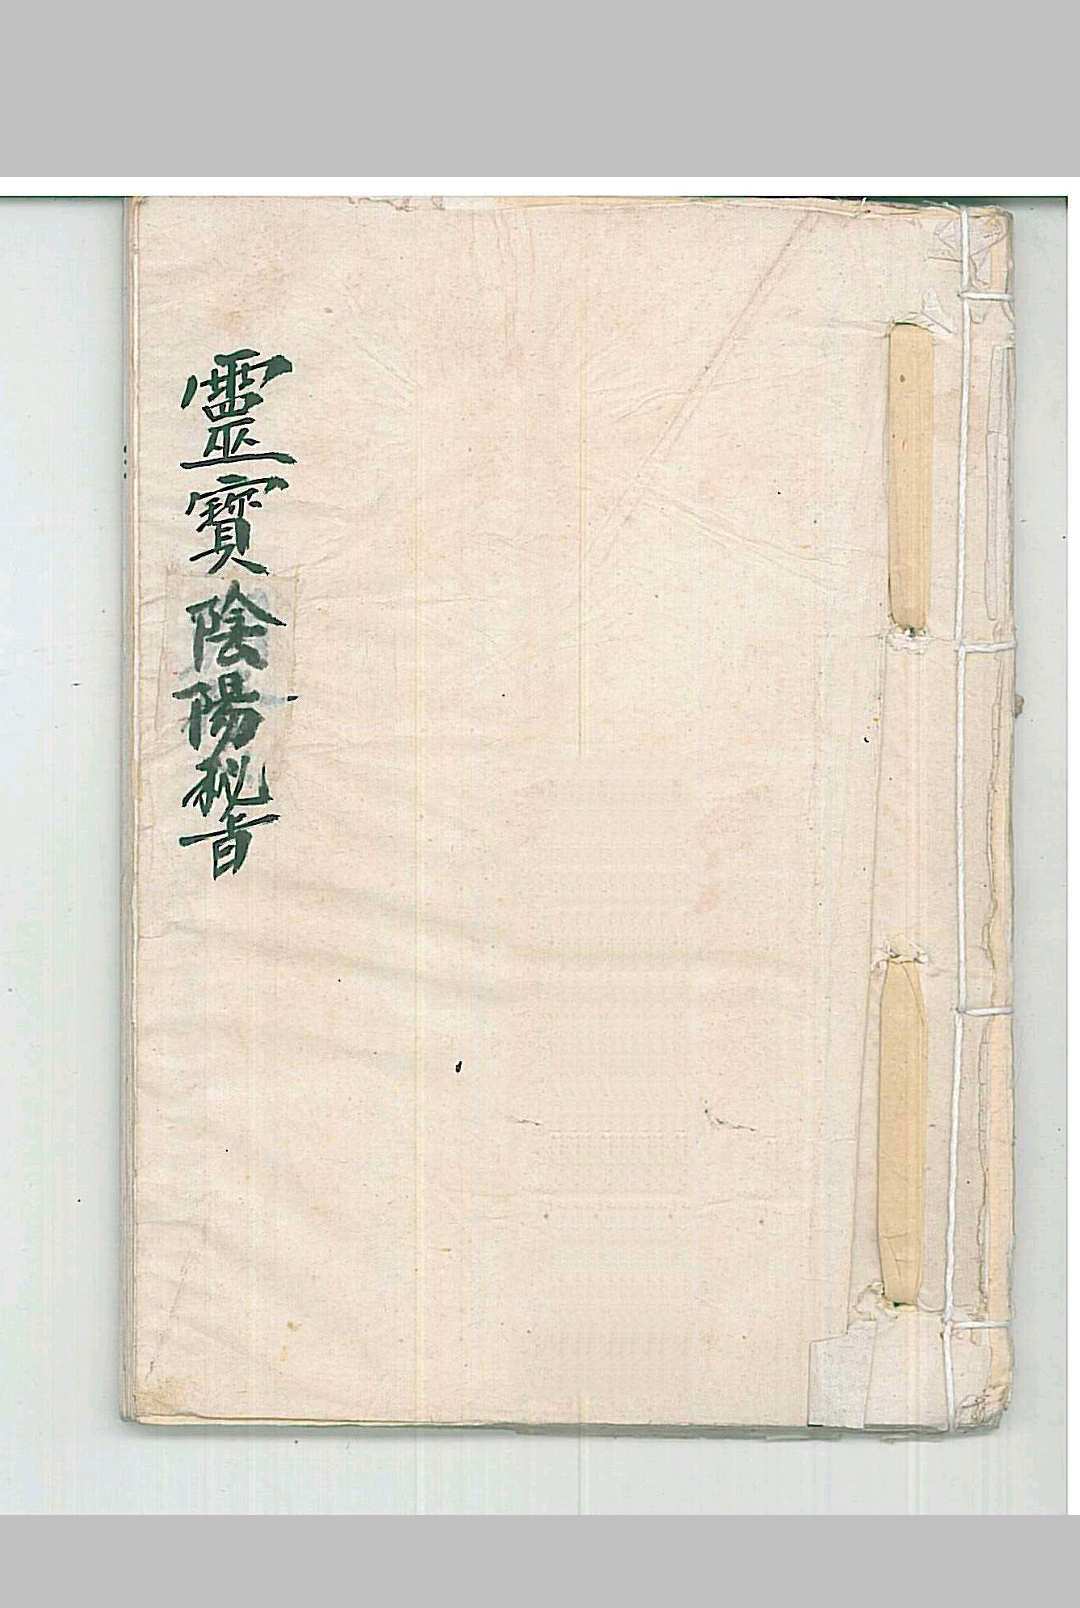 靈寶陰陽秘旨